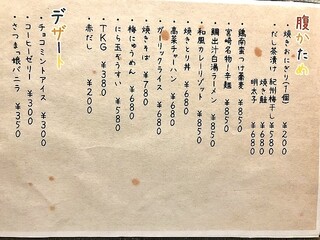 腹がため
・焼きおにぎり(1個) ¥200
・だし茶漬け 紀州梅干し ¥580
焼き鮭 ¥680
明太子 ¥680
・鶏南蛮つけ蕎麦 ¥850
・宮崎名物！辛麺 ¥850
・鯛出汁白湯ラーメン ¥850
・和風カレーリゾット ¥850
・焼きとり丼 ¥680
・高菜チャーハン ¥680
・ガーリックライス ¥680
・焼きそば ¥780
・梅にゅうめん ¥680
・にら玉ぞうすい ¥580
・TKG ¥380
・赤だし ¥200
デザート
・チョコミントアイス ¥300
・コーヒーゼリー ¥300
・さつまっ娘バニラ ¥350